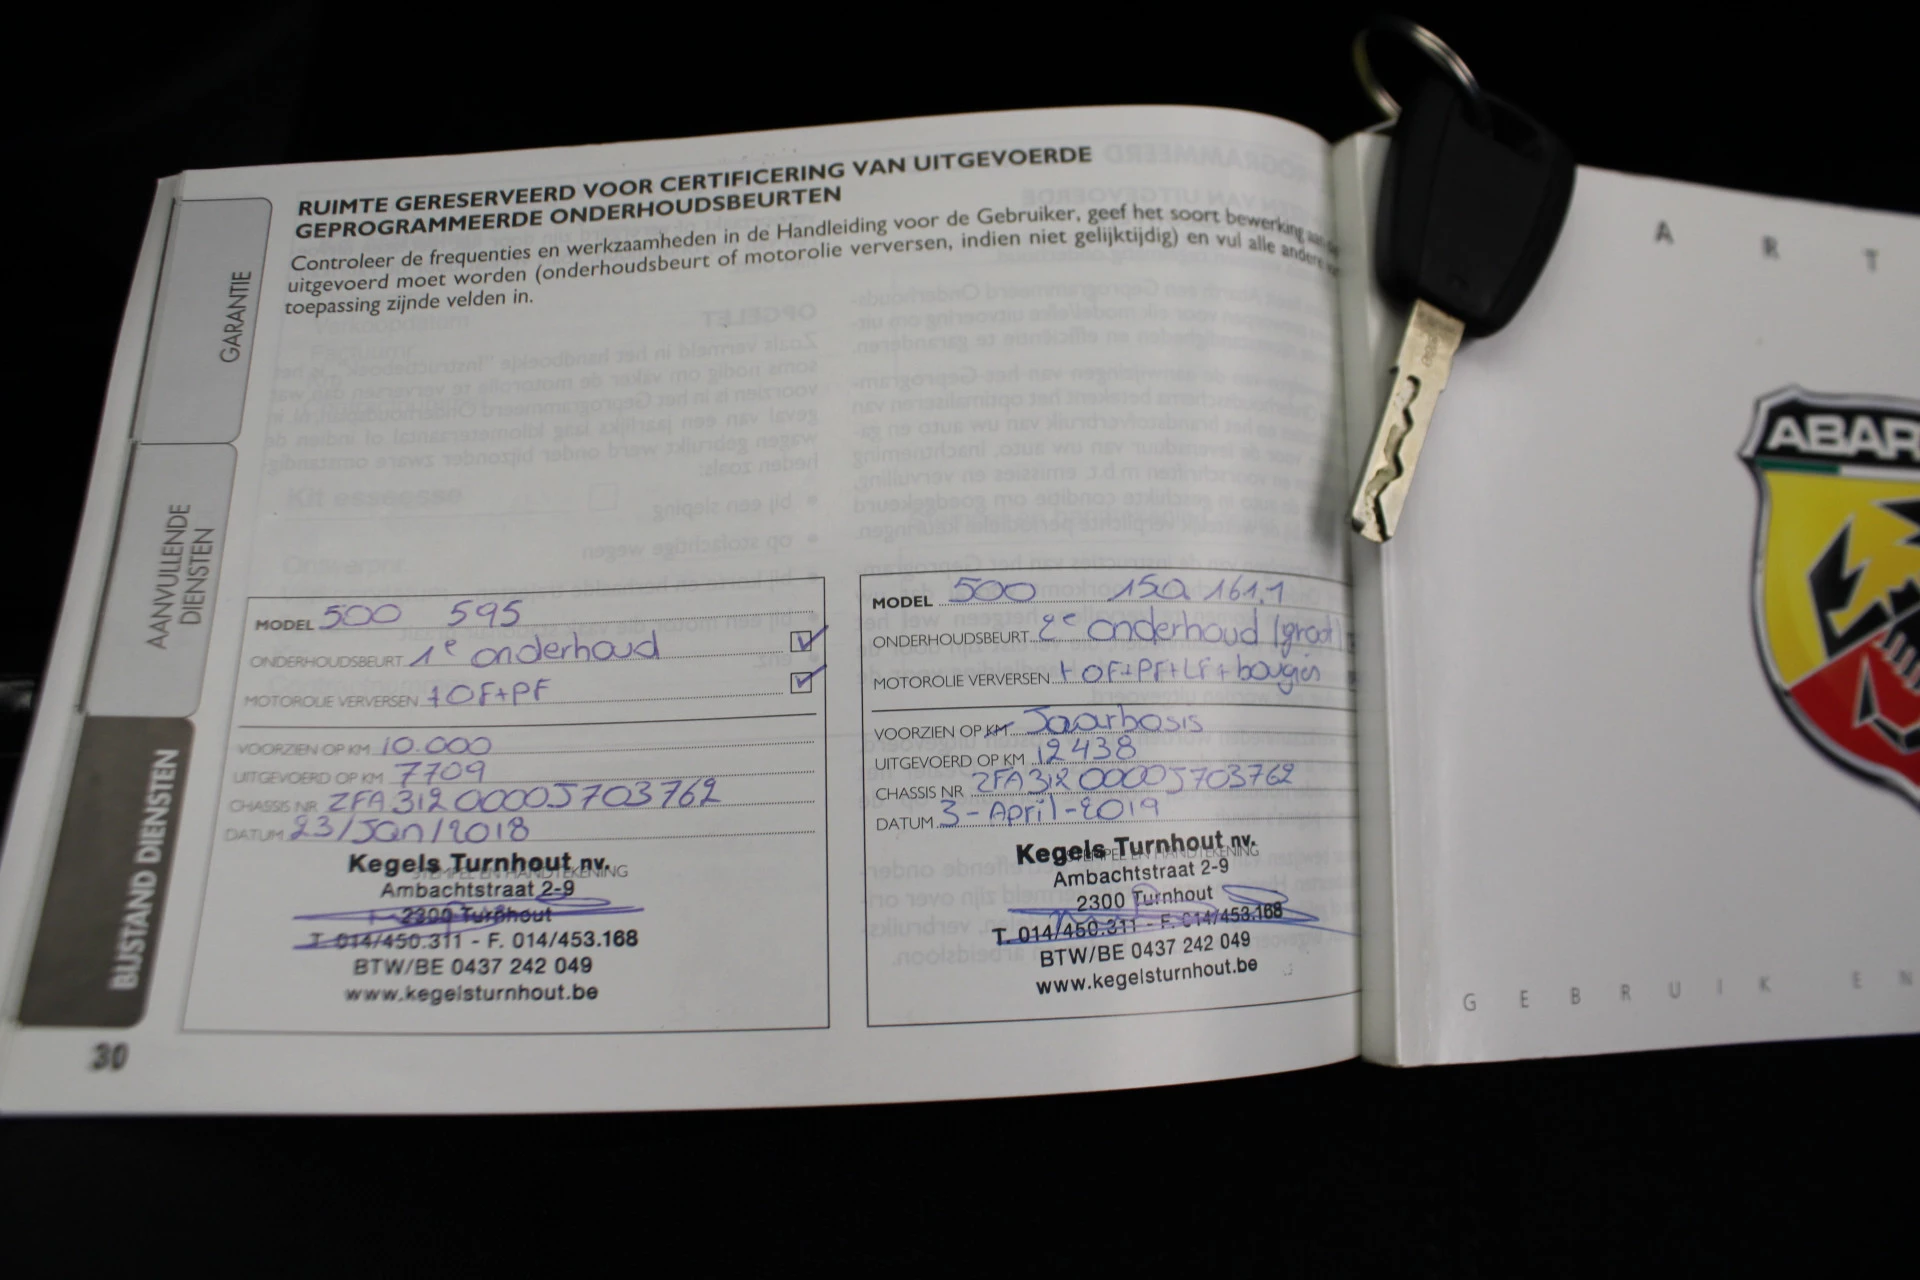 RUIMTE GERESERVEERD VOOR CERTIFICERING VAN UITGEVOERDE
GEPROGRAMMEERDE ONDERHOUDSBEURTEN
Controleer de frequenties en werkzaamheden in de Handleiding voor de Gebruiker, geef het soort bewerking
uitgevoerd moet worden (onderhoudsbeurt of motorolie verversen, indien niet gelijktijdig) en vul alle andere
toepassing zijnde velden in.
GARANTIE
AANVULLENDE
DIENSTEN
BIJSTAND DIENSTEN
MODEL 500 595
ONDERHOUDSBEURT 1e onderhoud
MOTOROLIE VERVERSEN +OF+PF
VOORZIEN OP KM 10.000
UITGEVOERD OP KM 7709
CHASSIS NR ZFA 312 0000J703762
DATUM 23/Jan/2018
STEMPEL EN HANDTEKENING
Kegels Turnhout nv.
Ambachtstraat 2-9
2300 Turnhout
T. 014/450.311 - F. 014/453.168
BTW/BE 0437 242 049
www.kegelsturnhout.be
30
MODEL 500 150 161.1
ONDERHOUDSBEURT 2e onderhoud (groot)
MOTOROLIE VERVERSEN + OF+PF+LF+bougies
VOORZIEN OP KM Jaarbasis
UITGEVOERD OP KM 12438
CHASSIS NR ZFA 312 0000J703762
DATUM 3-April-2019
STEMPEL EN HANDTEKENING
Kegels Turnhout nv.
Ambachtstraat 2-9
2300 Turnhout
T. 014/450.311 - F. 014/453.168
BTW/BE 0437 242 049
www.kegelsturnhout.be
A R T
ABAR
GEBRUIK EN